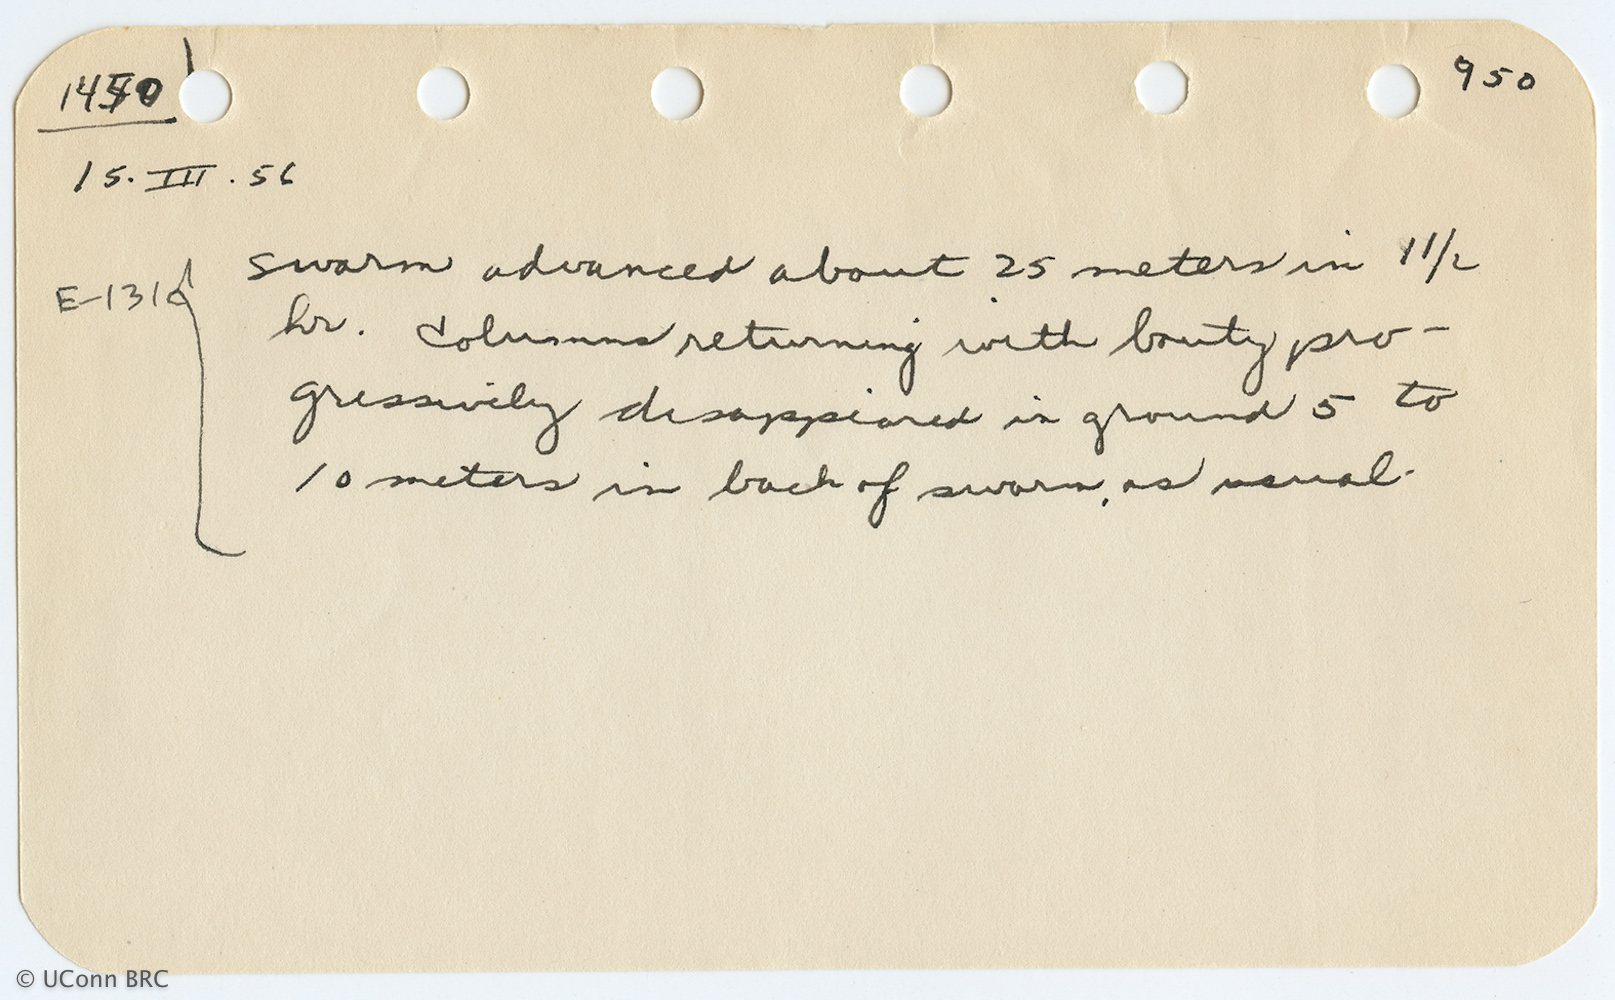 950
15. III. 56
E-131
swarm advanced about 25 meters in 1 1/2
hr. Columns returning with bouty pro-
gressively disappeared in ground 5 to
10 meters in back of swarm, as usual.
© UConn BRC